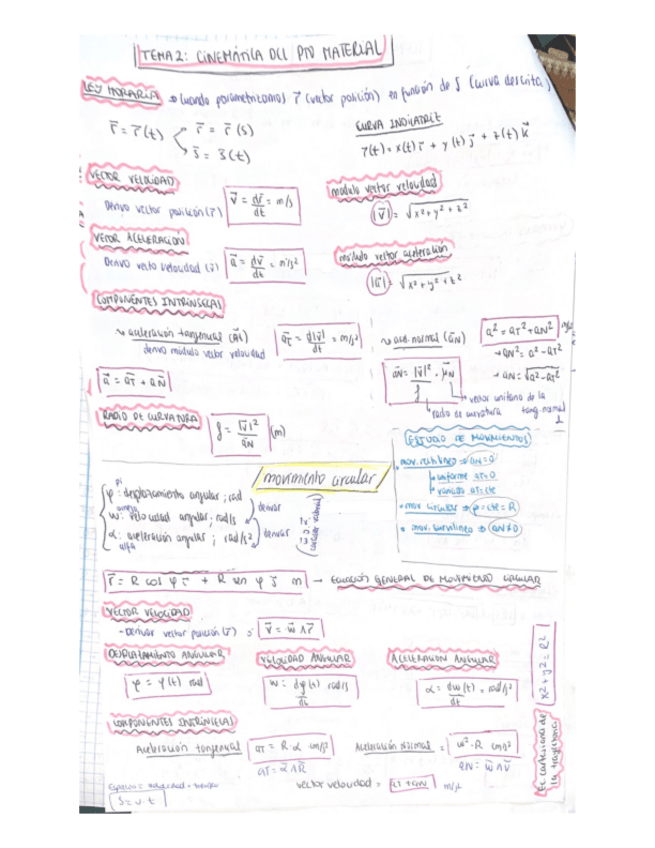 TEMA 2: CINEMÁTICA DEL PTO MATERIAL
LEY HORARIA → Cuando parametrizamos r⃗ (vector posición) en función de S (curva descrita)
r⃗ = r⃗(t)
r⃗ = r⃗(s)
s⃗ = s(t)
CURVA INDICATRIZ
r(t) = x(t) i⃗ + y(t) j⃗ + z(t) k⃗
VECTOR VELOCIDAD
Derivo vector posición (r⃗)
v⃗ = dr⃗/dt = m/s
módulo vector velocidad
|v⃗| = √x²+y²+z²
VETOR ACELERACIÓN
Derivo vecto velocidad (v⃗)
a⃗ = dv⃗/dt = m/s²
módulo vector aceleración
|a⃗| = √x²+y²+z²
COMPONENTES INTRÍNSECAS
↪ aceleración tangencial (a⃗t)
derivo módulo vector velocidad
a⃗T = d|v⃗|/dt = m/s²
↪ acel. normal (a⃗N)
a⃗N = |v⃗|²/ρ · μ⃗N
→ vector unitario de la tang. normal
↳ radio de curvatura
a² = aT² + aN²
→ aN² = a² - aT²
→ aN = √a² - aT²
a⃗ = a⃗T + a⃗N
RADIO DE CURVATURA
ρ = |v⃗|²/a⃗N (m)
ESTUDIO DE MOVIMIENTOS
• mov. rectilíneo ⇒ aN = 0
uniforme aT = 0
variado aT = cte
• mov circular ⇒ ρ = cte = R
• mov. curvilíneo ⇒ aN ≠ 0
movimiento circular
pi
φ: desplazamiento angular; rad
omega
w: velocidad angular; rad/s
derivar
α: aceleración angular; rad/s²
alfa
derivar
r⃗ = R cos φ i⃗ + R sen φ j⃗ m → ECUACIÓN GENERAL DE MOVIMIENTO CIRCULAR
VECTOR VELOCIDAD
- Derivar vector posición (r⃗) ó
v⃗ = w⃗ ∧ r⃗
DESPLAZAMIENTO ANGULAR
φ = φ(t) rad
VELOCIDAD ANGULAR
w = dφ(t)/dt rad/s
ACELERACION ANGULAR
α = dw(t)/dt = rad/s²
COMPONENTES INTRÍNSECAS
Aceleración tangencial
aT = R·α cm/s²
aT = α⃗ ∧ R⃗
Aceleración Normal =
w²·R cm/s²
aN = w⃗ ∧ v⃗
vector velocidad = aT + aN m/s²
S = v · t
x² + y² = R²
Ec cartesiana de la trayectoria